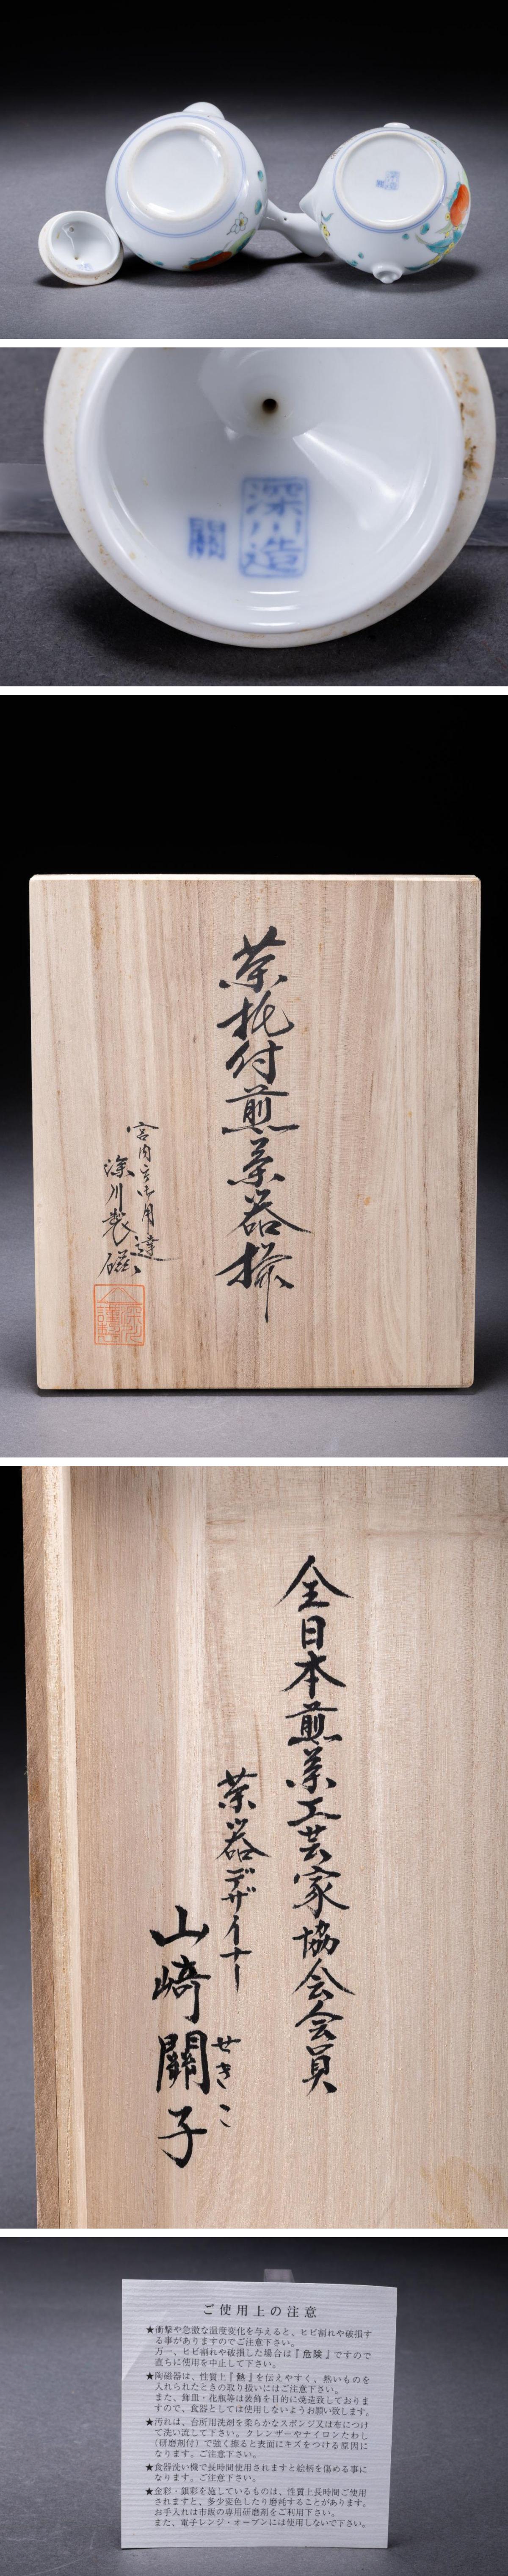 深川造
關
茶托付煎茶器揃
宮内庁御用達
深川製磁
深川
謹製
全日本煎茶工芸家協会会員
茶器デザイナー
山﨑關子
せきこ
ご使用上の注意
★衝撃や急激な温度変化を与えると、ヒビ割れや破損す
る事がありますのでご注意下さい。
万一、ヒビ割れや破損した場合は『危険』ですので
直ちに使用を中止して下さい。
★陶磁器は、性質上『熱』を伝えやすく、熱いものを
入れられたときの取り扱いにはご注意下さい。
また、飾皿・花瓶等は装飾を目的に焼造致しておりま
すので、食器としては使用しないようお願い致します。
★汚れは、台所用洗剤を柔らかなスポンジ又は布につけ
て洗い流して下さい。クレンザーやナイロンたわし
(研磨剤付)で強く擦ると表面にキズをつける原因に
なります。ご注意下さい。
★食器洗い機で長時間使用されますと絵柄を傷める事に
なります。ご注意下さい。
★金彩・銀彩を施しているものは、性質上長時間ご使用
されますと、多少変色したり磨耗することがあります。
お手入れは市販の専用研磨剤をご利用下さい。
また、電子レンジ・オーブンには使用しないで下さい。